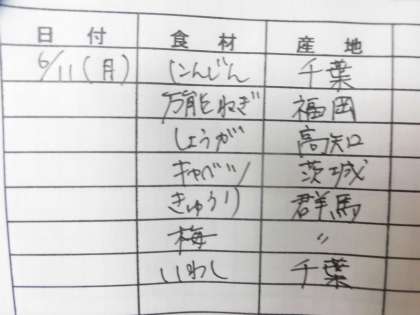 日付 食材 産地
6/11(月) にんじん 千葉
万能ねぎ 福岡
しょうが 高知
キャベツ 茨城
きゅうり 群馬
梅 〃
いわし 千葉